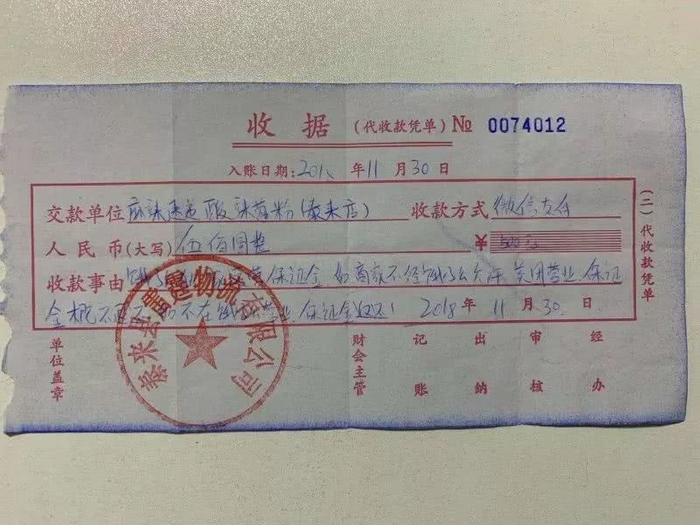 收据 (代收款凭单) № 0074012
入账日期: 201 年 11 月 30 日
交款单位 酸菜 粉 (泰来店) 收款方式 微信支付
人民币(大写) 伍佰圆整 ¥ 500元
收款事由 饿了么 保证金 如商家不经饿了么允许, 美团营业, 保证
金概不退 不在饿 营业, 保证金退还! 2018 年 11 月 30 日
(二)代收款凭单
单位盖章 财会主管 记账 出纳 审核 经办
泰来县 物流有限公司